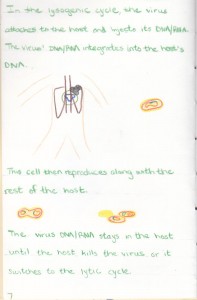 In the lysogenic cycle the virus
attaches to the host and injects its DNA/RNA.
The virus' DNA/RNA integrates into the host's
DNA.
The cell then reproduces along with the
rest of the host.
The virus DNA/RNA stays in the host
until the host kills the virus or it
switches to the lytic cycle.
7